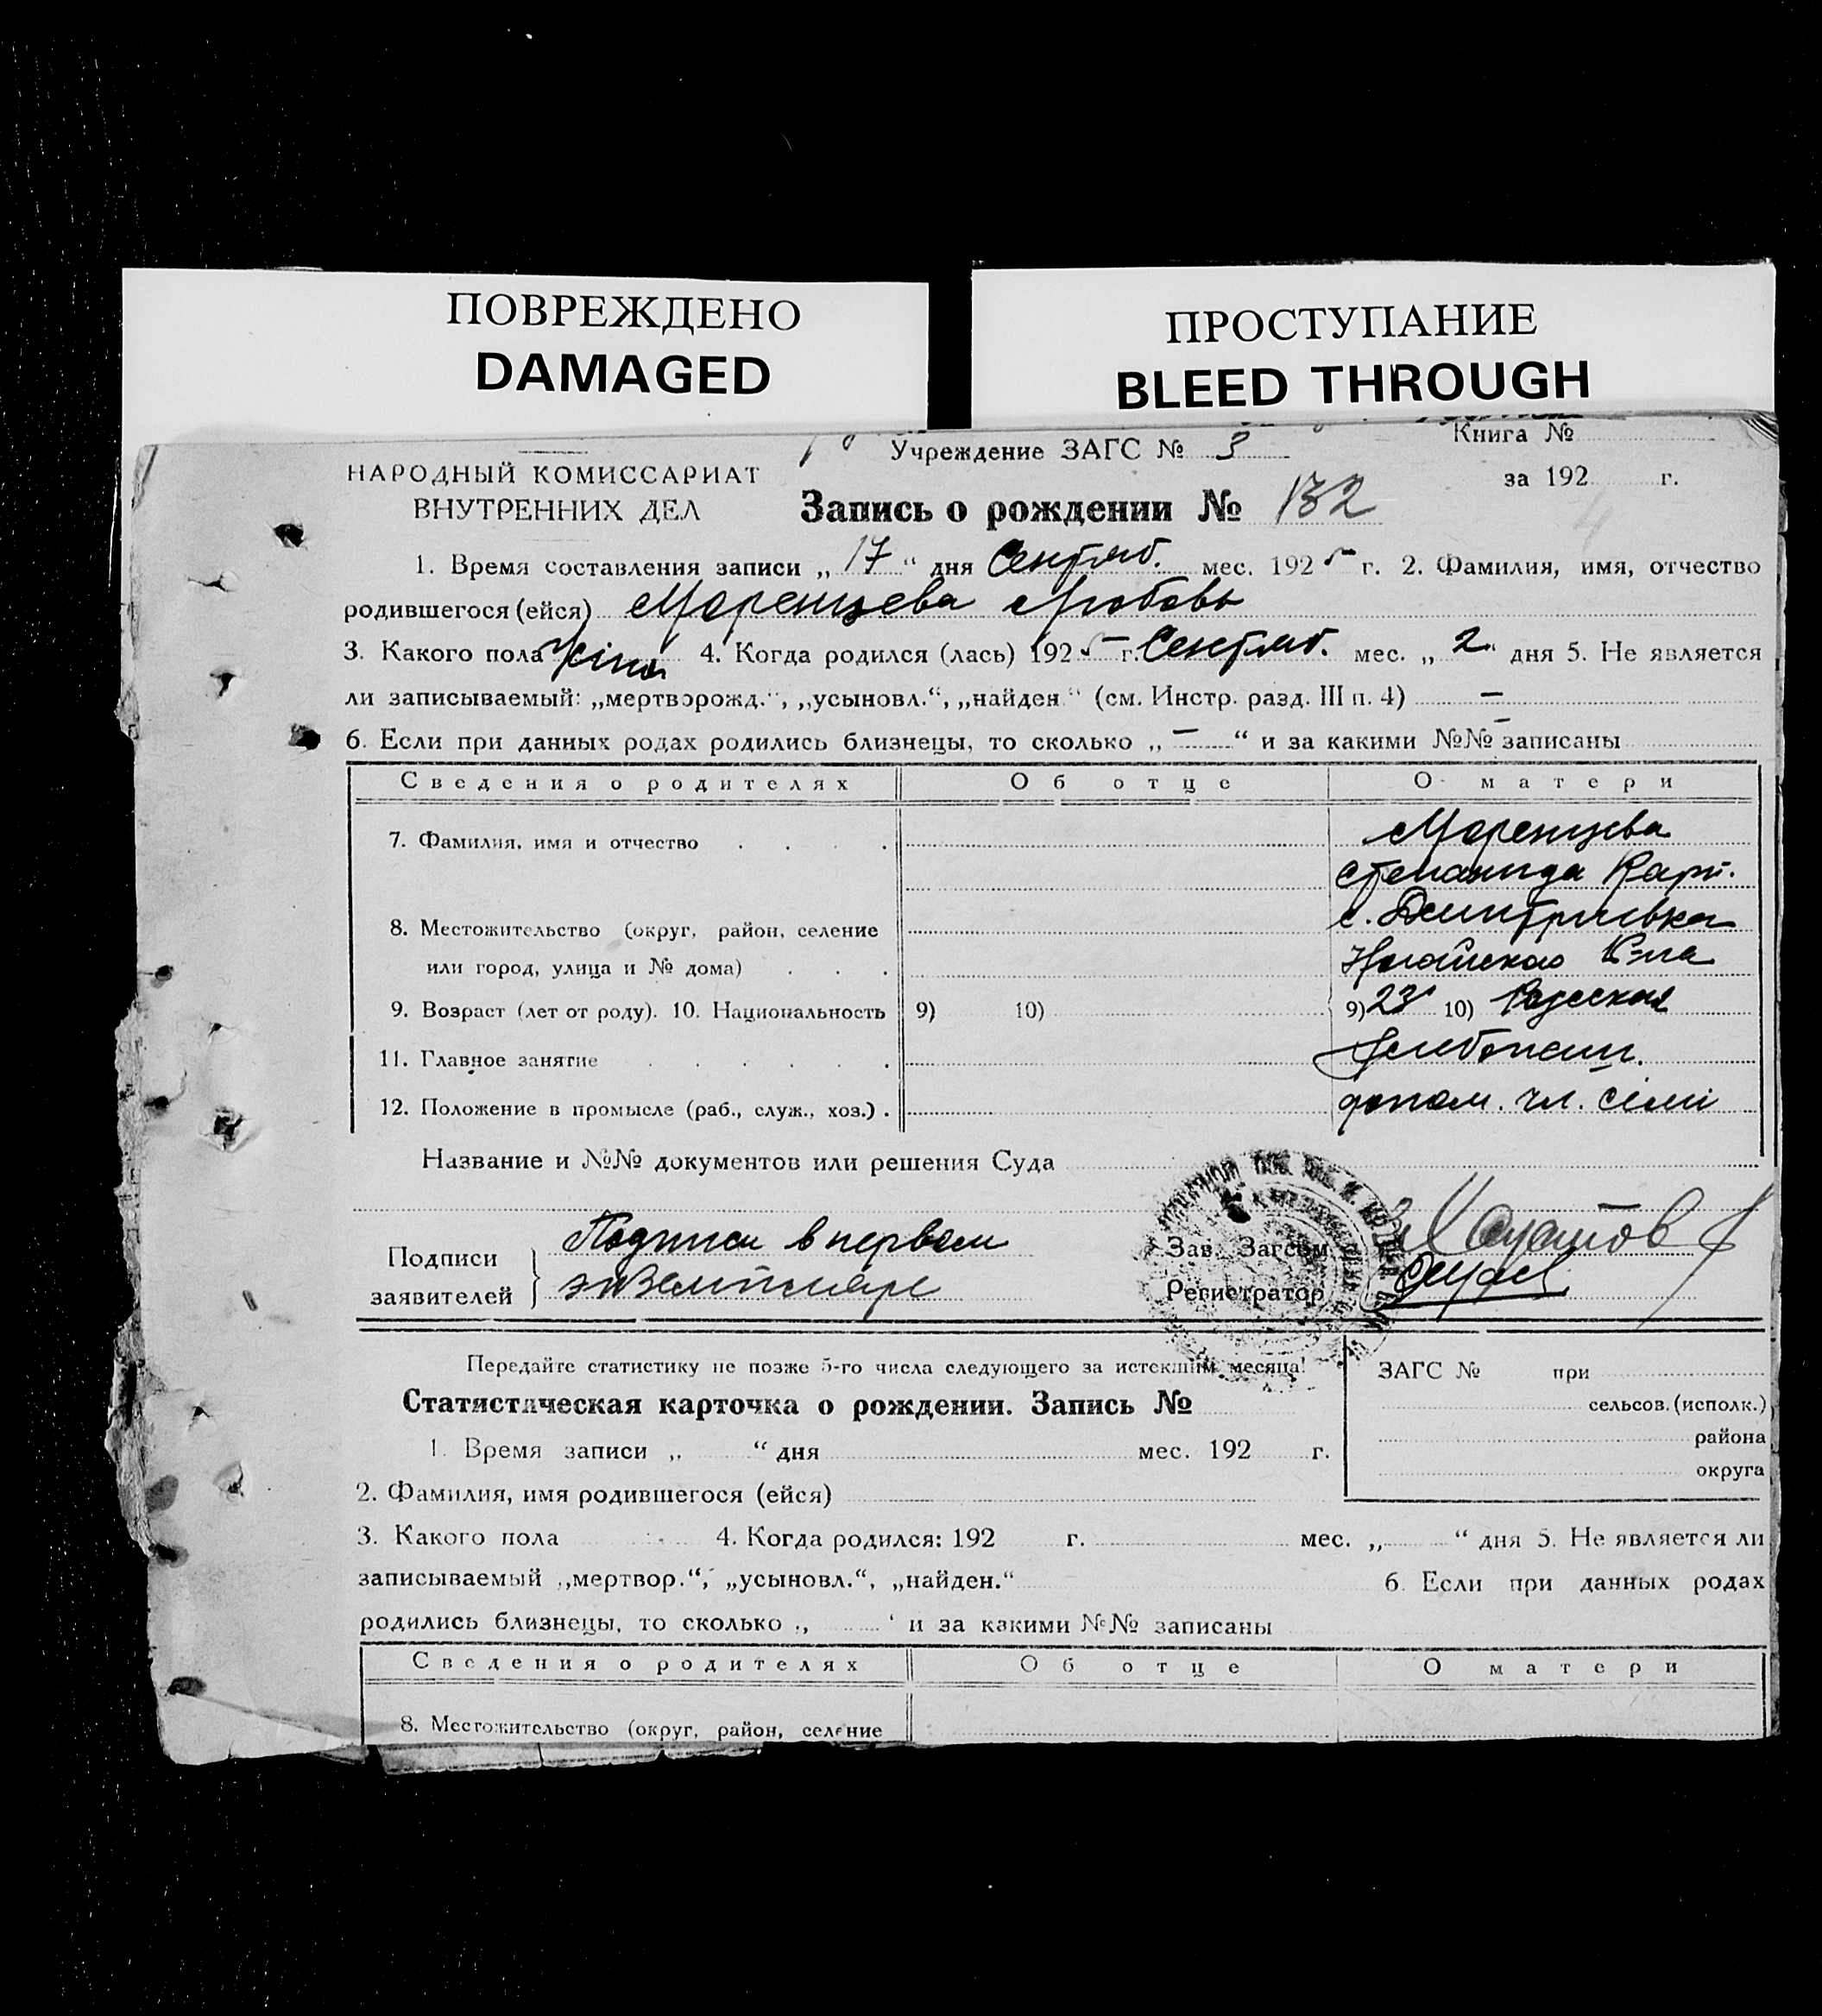 ПОВРЕЖДЕНО
DAMAGED
ПРОСТУПАНИЕ
BLEED THROUGH
Учреждение ЗАГС № 3
Книга №
НАРОДНЫЙ КОМИССАРИАТ
ВНУТРЕННИХ ДЕЛ
за 192 г.
Запись о рождении № 132
1. Время составления записи „ 17 “ дня Сентяб. мес. 1925 г. 2. Фамилия, имя, отчество
родившегося (ейся) Моренцева Любовь
3. Какого пола жіноч 4. Когда родился (лась) 1925 г. Сентяб. мес. „ 2 “ дня 5. Не является
ли записываемый: „мертворожд.“, „усыновл.“, „найден“ (см. Инстр. разд. III п. 4) —
6. Если при данных родах родились близнецы, то сколько „ — “ и за какими №№ записаны —
Сведения о родителях Об отце О матери
7. Фамилия, имя и отчество . . . . Моренцева
Степанида Карп.
8. Местожительство (округ, район, селение с. Дмитрівка
или город, улица и № дома) . . . Ногайского К-на
9. Возраст (лет от роду). 10. Национальность 9) 10) 9) 23 10) Русская
11. Главное занятие . . . . . . Хлебопаш.
12. Положение в промысле (раб., служ., хоз.) . допом. чл. сімі
Название и №№ документов или решения Суда
Подписи
заявителей
Подписи в первом
экземпляре
Зав. Загсом
Регистратор
Передайте статистику не позже 5-го числа следующего за истекшим месяца!
Статистическая карточка о рождении. Запись №
ЗАГС № при
сельсов. (исполк.)
района
округа
1. Время записи „ “ дня мес. 192 г.
2. Фамилия, имя родившегося (ейся)
3. Какого пола 4. Когда родился: 192 г. мес. „ “ дня 5. Не является ли
записываемый „мертвор.“, „усыновл.“, „найден.“ 6. Если при данных родах
родились близнецы, то сколько „ “ и за какими №№ записаны
Сведения о родителях Об отце О матери
8. Местожительство (округ, район, селение